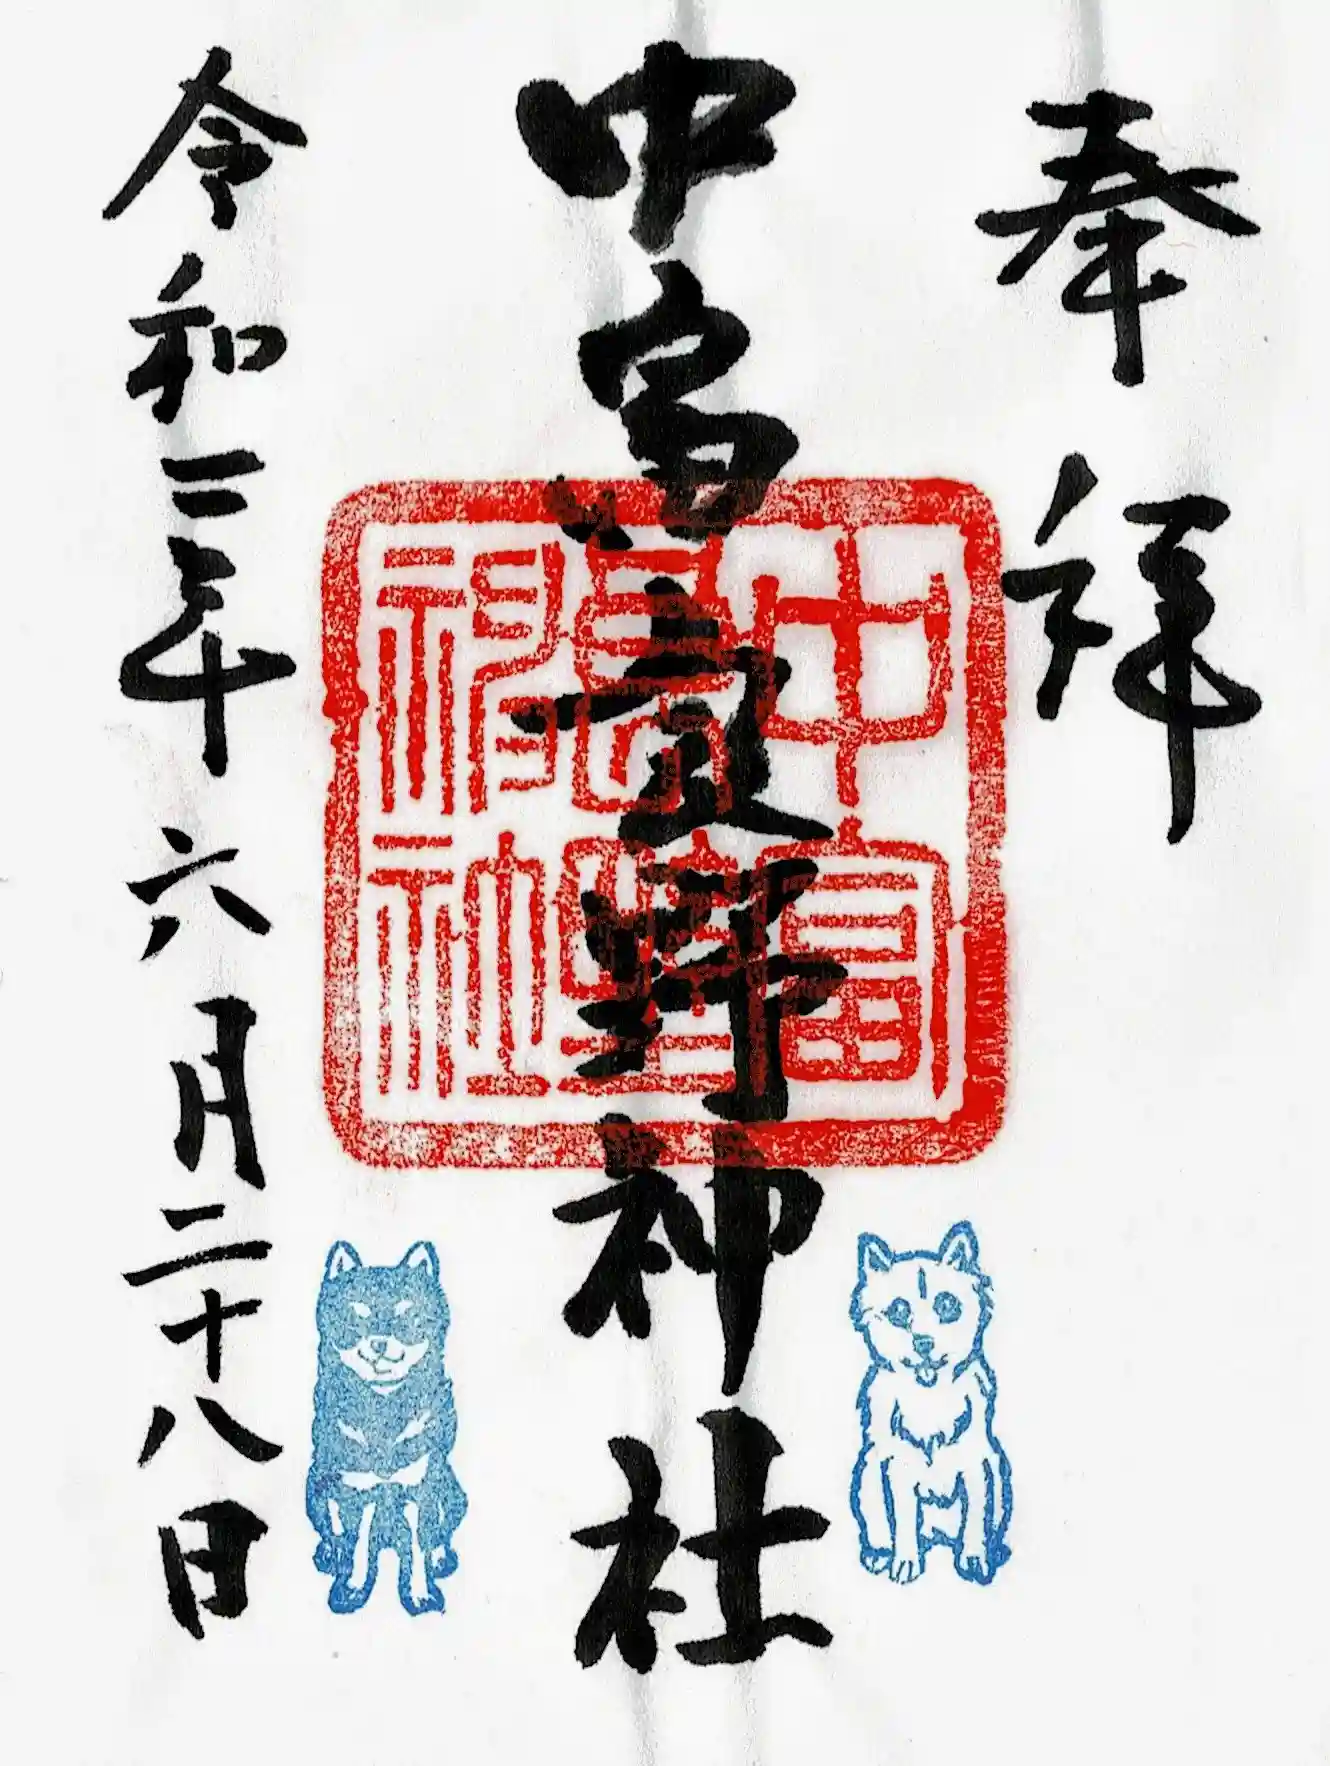 奉拝
中富良野神社
中富
良野
神社
令和二年六月二十八日